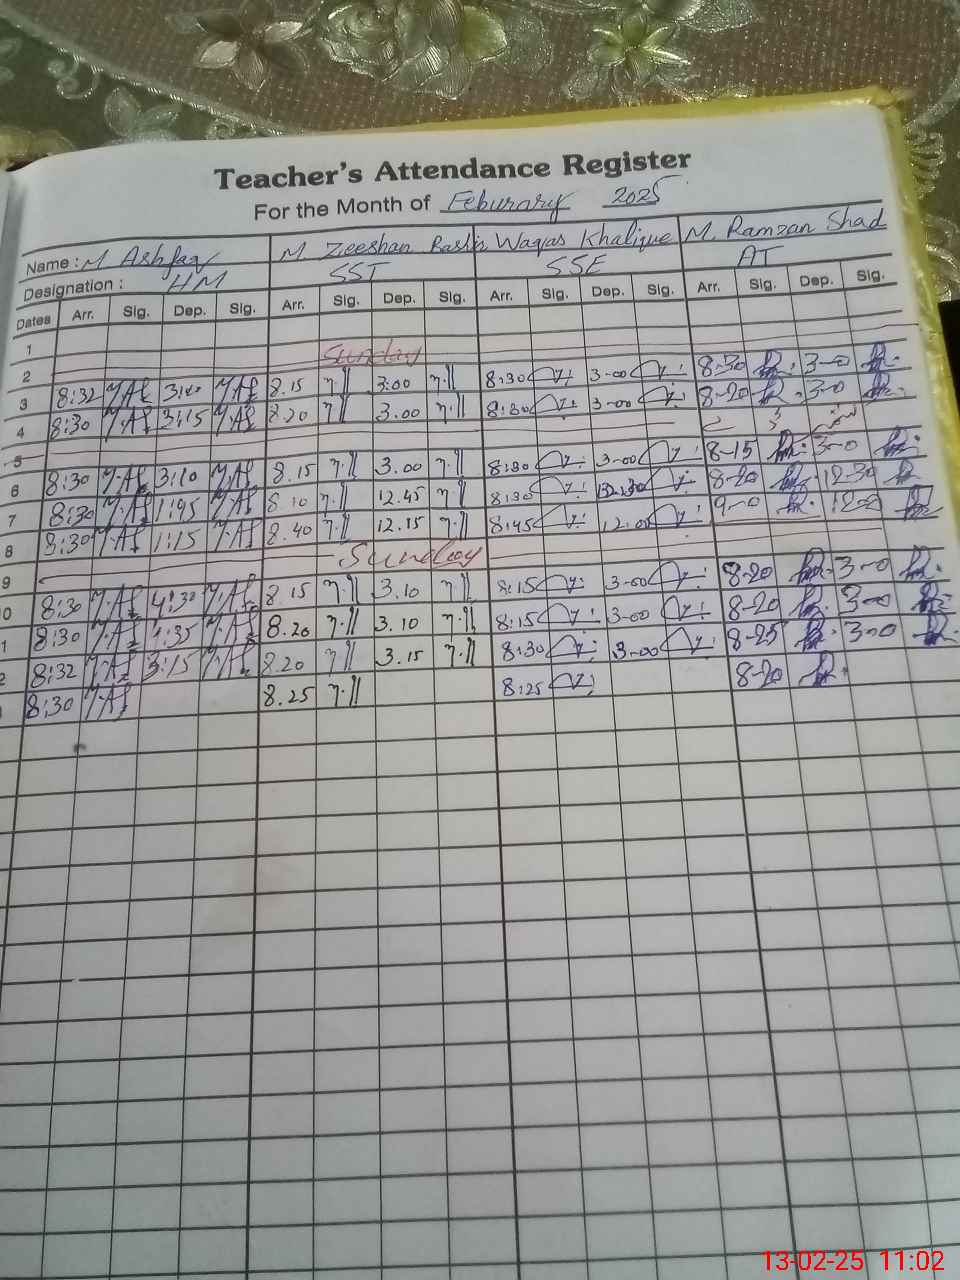 Teacher's Attendance Register
For the Month of Feburary 2025
Name : M Ashfaq M Zeeshan Bashir Waqas Khalique M. Ramzan Shad
Designation : HM SST SSE AT
Dates Arr. Sig. Dep. Sig. Arr. Sig. Dep. Sig. Arr. Sig. Dep. Sig. Arr. Sig. Dep. Sig.
1
2 Sunday
3 8:32 3:00 8.15 3:00 8:30 3-00 8-30 3-0
4 8:30 3:15 8.20 3.00 8:30 3-00 8-20 3-0
5
6 8:30 3:10 8.15 3.00 8:30 3-00 8-15 3-0
7 8:30 1:45 8.10 12.45 8:30 12:30 8-20 12-30
8 8:30 1:15 8.40 12.15 8:45 12:00 9-0 12-0
9 Sunday
10 8:30 4:30 8.15 3.10 8:15 3-00 8-20 3-0
1 8:30 4:35 8.20 3.10 8:15 3-00 8-20 3-0
2 8:32 3:15 8.20 3.15 8:30 3-00 8-25 3-0
8:30 8.25 8:25 8-20
13-02-25 11:02